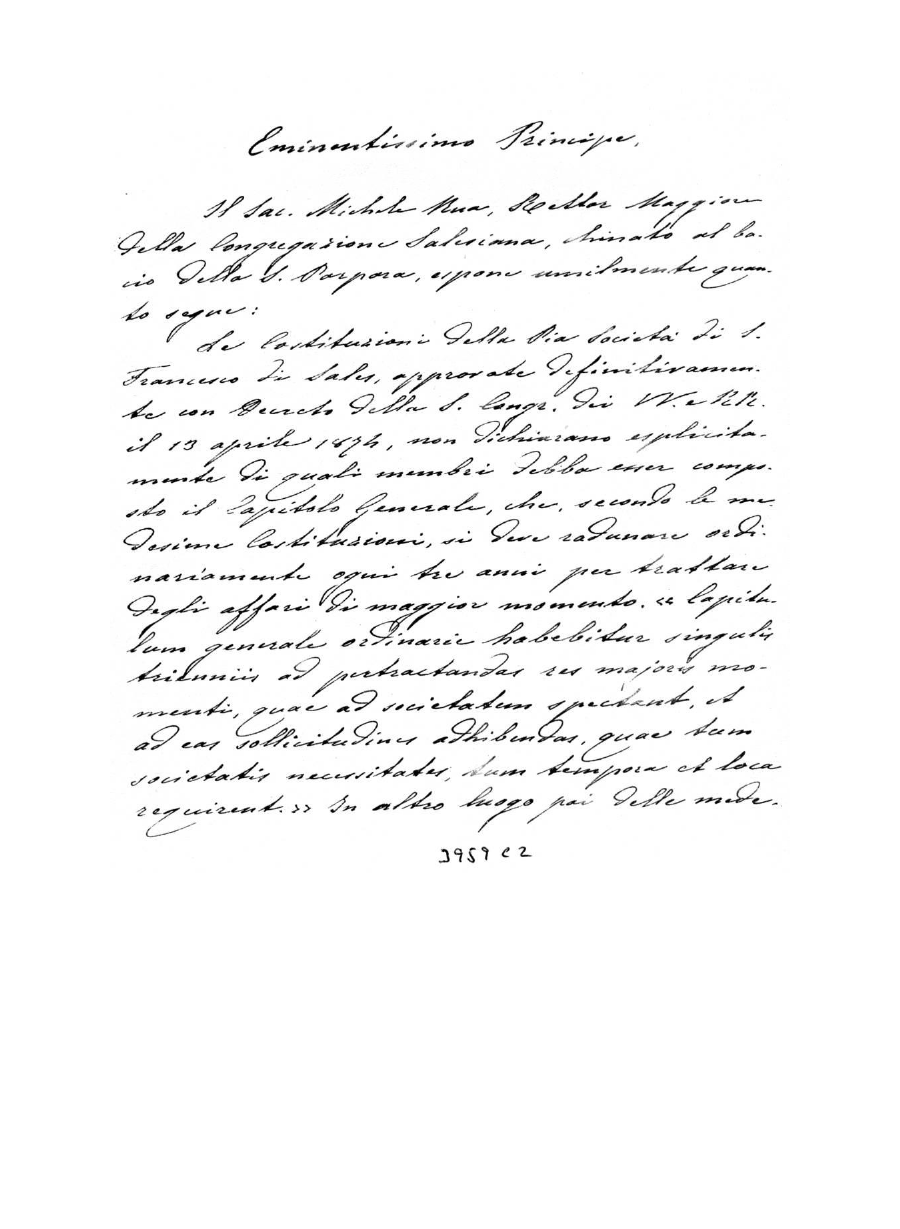 Eminentissimo Principe,
Il Sac. Michele Rua, Rettor Maggiore
della Congregazione Salesiana, chinato al ba-
cio della S. Porpora, espone umilmente quan-
to segue:
Le Costituzioni della Pia Società di S.
Francesco di Sales, approvate definitivamen-
te con Decreto della S. Congr. dei VV. e RR.
il 13 aprile 1874, non dichiarano esplicita-
mente di quali membri debba esser compo-
sto il Capitolo Generale, che, secondo le me
desime Costituzioni, si deve radunare ordi-
nariamente ogni tre anni per trattare
degli affari di maggior momento. « Capitu-
lum generale ordinarie habebitur singulis
trienniis ad pertractandas res majoris mo-
menti, quae ad societatem spectant, et
ad eas sollicitudines adhibendas, quae tum
societatis necessitates, tum tempora et loca
requirent. » In altro luogo poi delle mede-
3959 C2